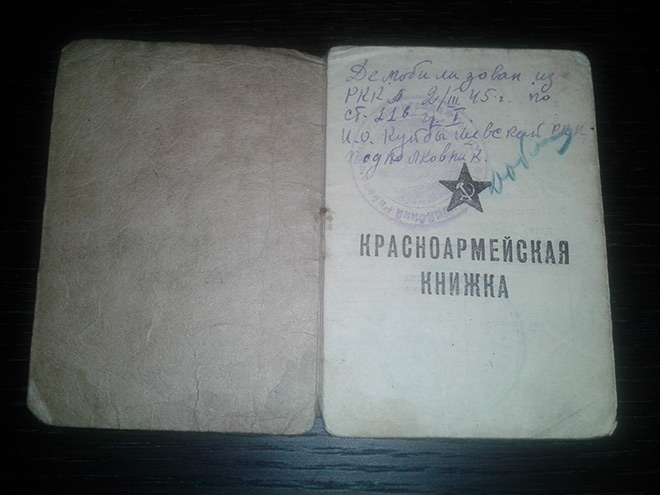 Демобилизован из
РККА 2/III 45 г. по
ст. 11б гр. I.
И.О. Куйбышевский РВК
подполковник.
КРАСНОАРМЕЙСКАЯ
КНИЖКА